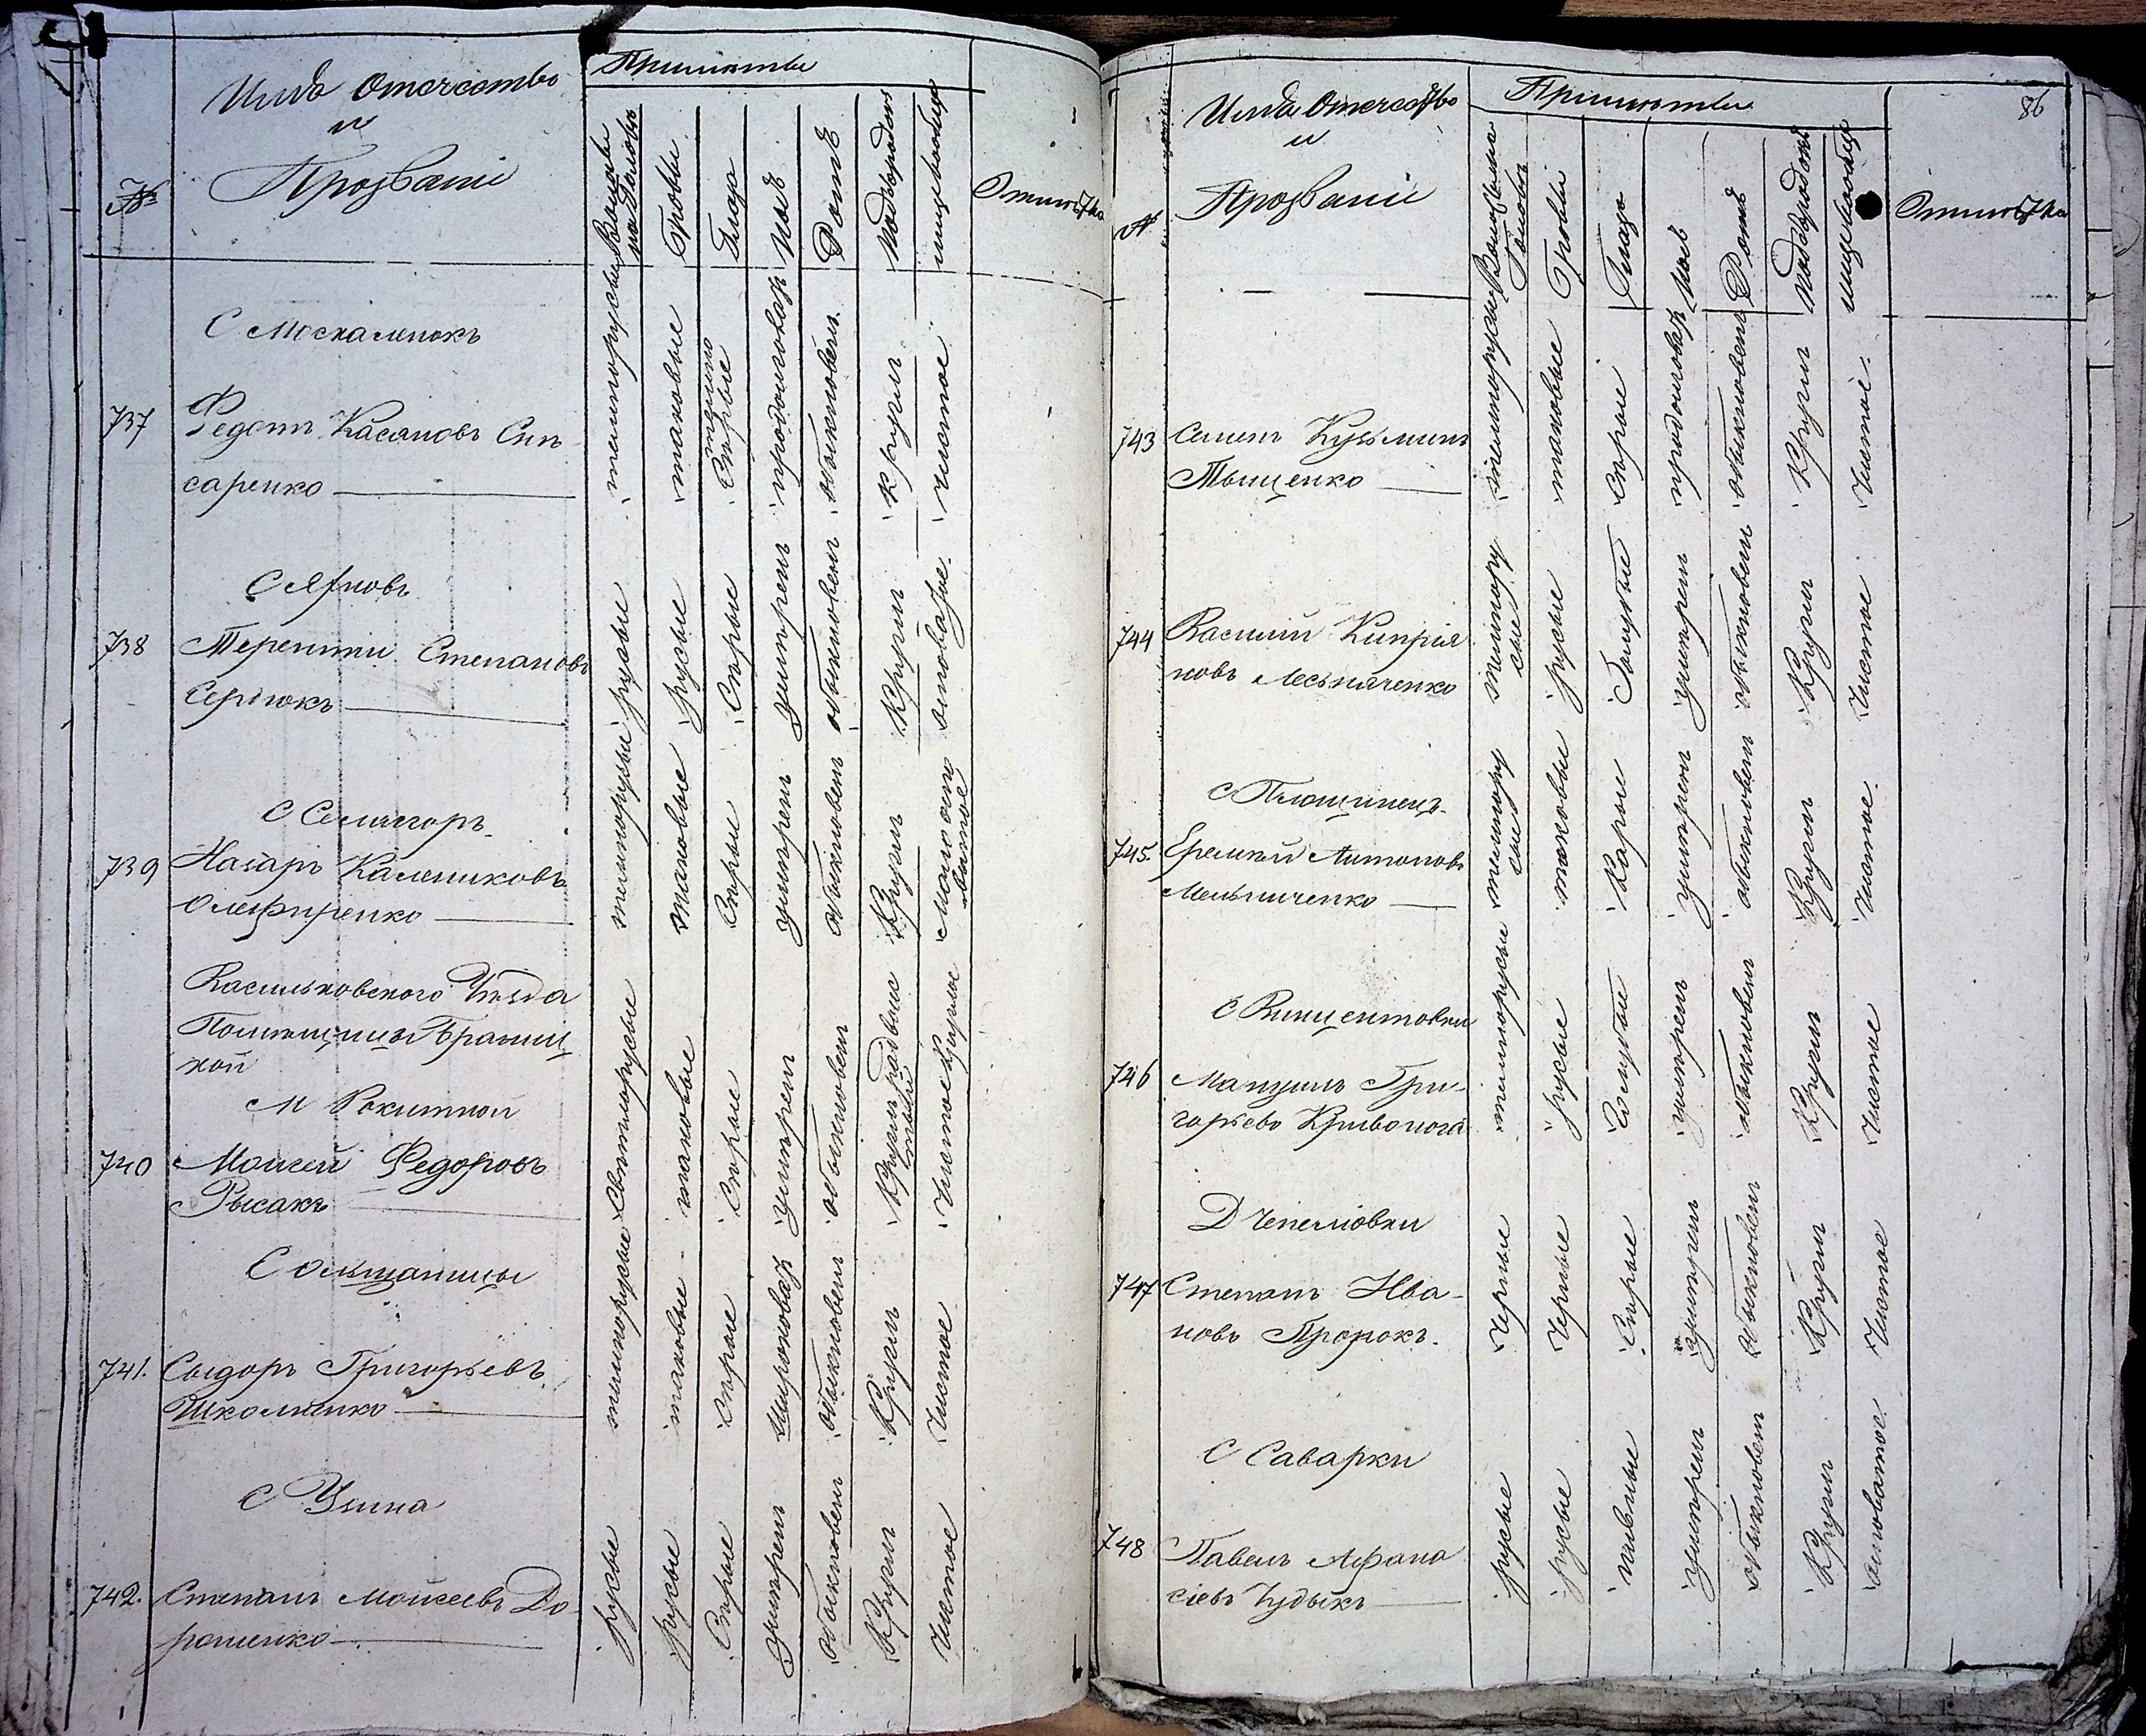 №
Имя Отечество
и
Прозваніе
Приметы
Волосы
на Голове
Брови
Глаза
Носъ
Ротъ
Подбородокъ
лице вообще
Отметка
С Москаленокъ
737
Федотъ Касяновъ Сли
саренко
темнорусые
таковые
темно
Серые
продолговат
обыкновен.
кругл
чистое
С Яхновъ
738
Терентій Степановъ
Сергіюкъ
русые
русые
Серые
умерен
обыкновен
Кругл
С Семигоръ
739
Назаръ Калениковъ
Олефиренко
темнорусые
таковые
Серые
умерен
обыкновен
Кругл
Васильковского Уезда
Помещицы Браниц
кой
М Рокитной
740
Моисей Федоровъ
Рысакъ
Светлорусые
таковые
Серые
умерен
обыкновен
Чистое Круглое
С Ольшаницы
741.
Сыдоръ Григорьевъ
Школенко
темнорусые
таковые
Серые
широковат
обыкновен
Кругл
Чистое
С Узина
742.
Степанъ Моисеевъ До
рошенко
русые
русые
Серые
Умерен
обыкновен
Кругл
Чистое
86
№
Имя Отечество
и
Прозваніе
Приметы
Волосы на
Голове
Брови
Глаза
Носъ
Ротъ
Подбородокъ
лице вообще
Отметка
743
Семенъ Кузьминъ
Тыщенко
темнорусые
таковые
Серые
продолговат
обыкновен
Кругл
Чистое.
744
Василий Кипрія
новъ Лесниченко
темнору
сые
русые
Голубые
умерен
обыкновен
Кругл
Чистое
С Пилищинецъ
745.
Еремей Антоновъ
Мельниченко
темнору
сые
таковые
Карые
умерен
обыкновен
Кругл
Чистое.
С Винцентовки
746
Мануилъ Гри-
горьевъ Кривонога
темнорусые
русые
Голубые
умерен
обыкновен
Кругл
Чистое
Д Чепелиовки
747
Степанъ Ива-
новъ Пророкъ.
Черные
Черные
Серые
умерен
обыкновен
Кругл
Чистое
С Саварки
748
Павелъ Афана
сіевъ Чудыкъ
русые
русые
пивные
умерен
обыкновен
Кругл